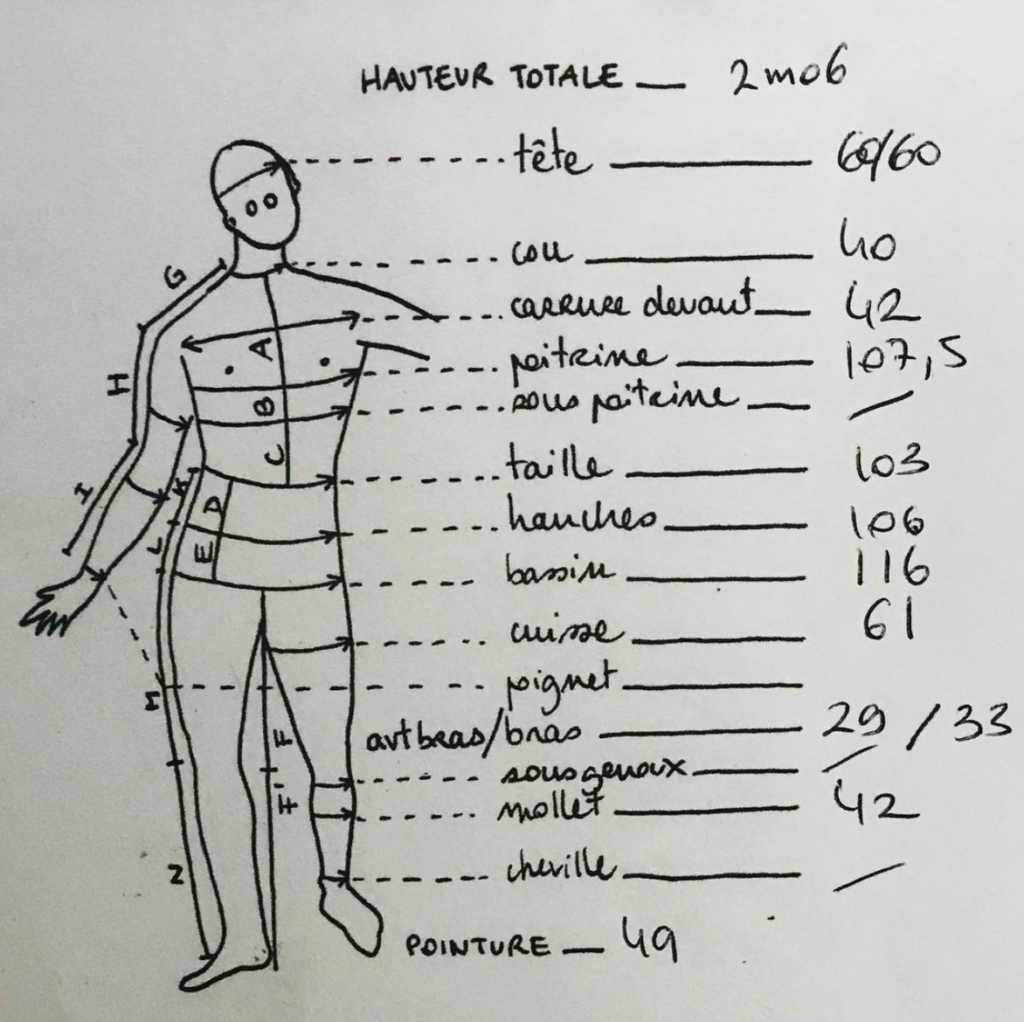 HAUTEUR TOTALE — 2m06
tête — 60/60
G
cou — 40
carrure devant — 42
A
poitrine — 107,5
H
sous poitrine — /
B
C
taille — 103
I
K
D
hanches — 106
L
E
bassin — 116
cuisse — 61
poignet —
M
avtbras/bras — 29 / 33
F
sousgenoux — /
F
mollet — 42
cheville — /
N
POINTURE — 49